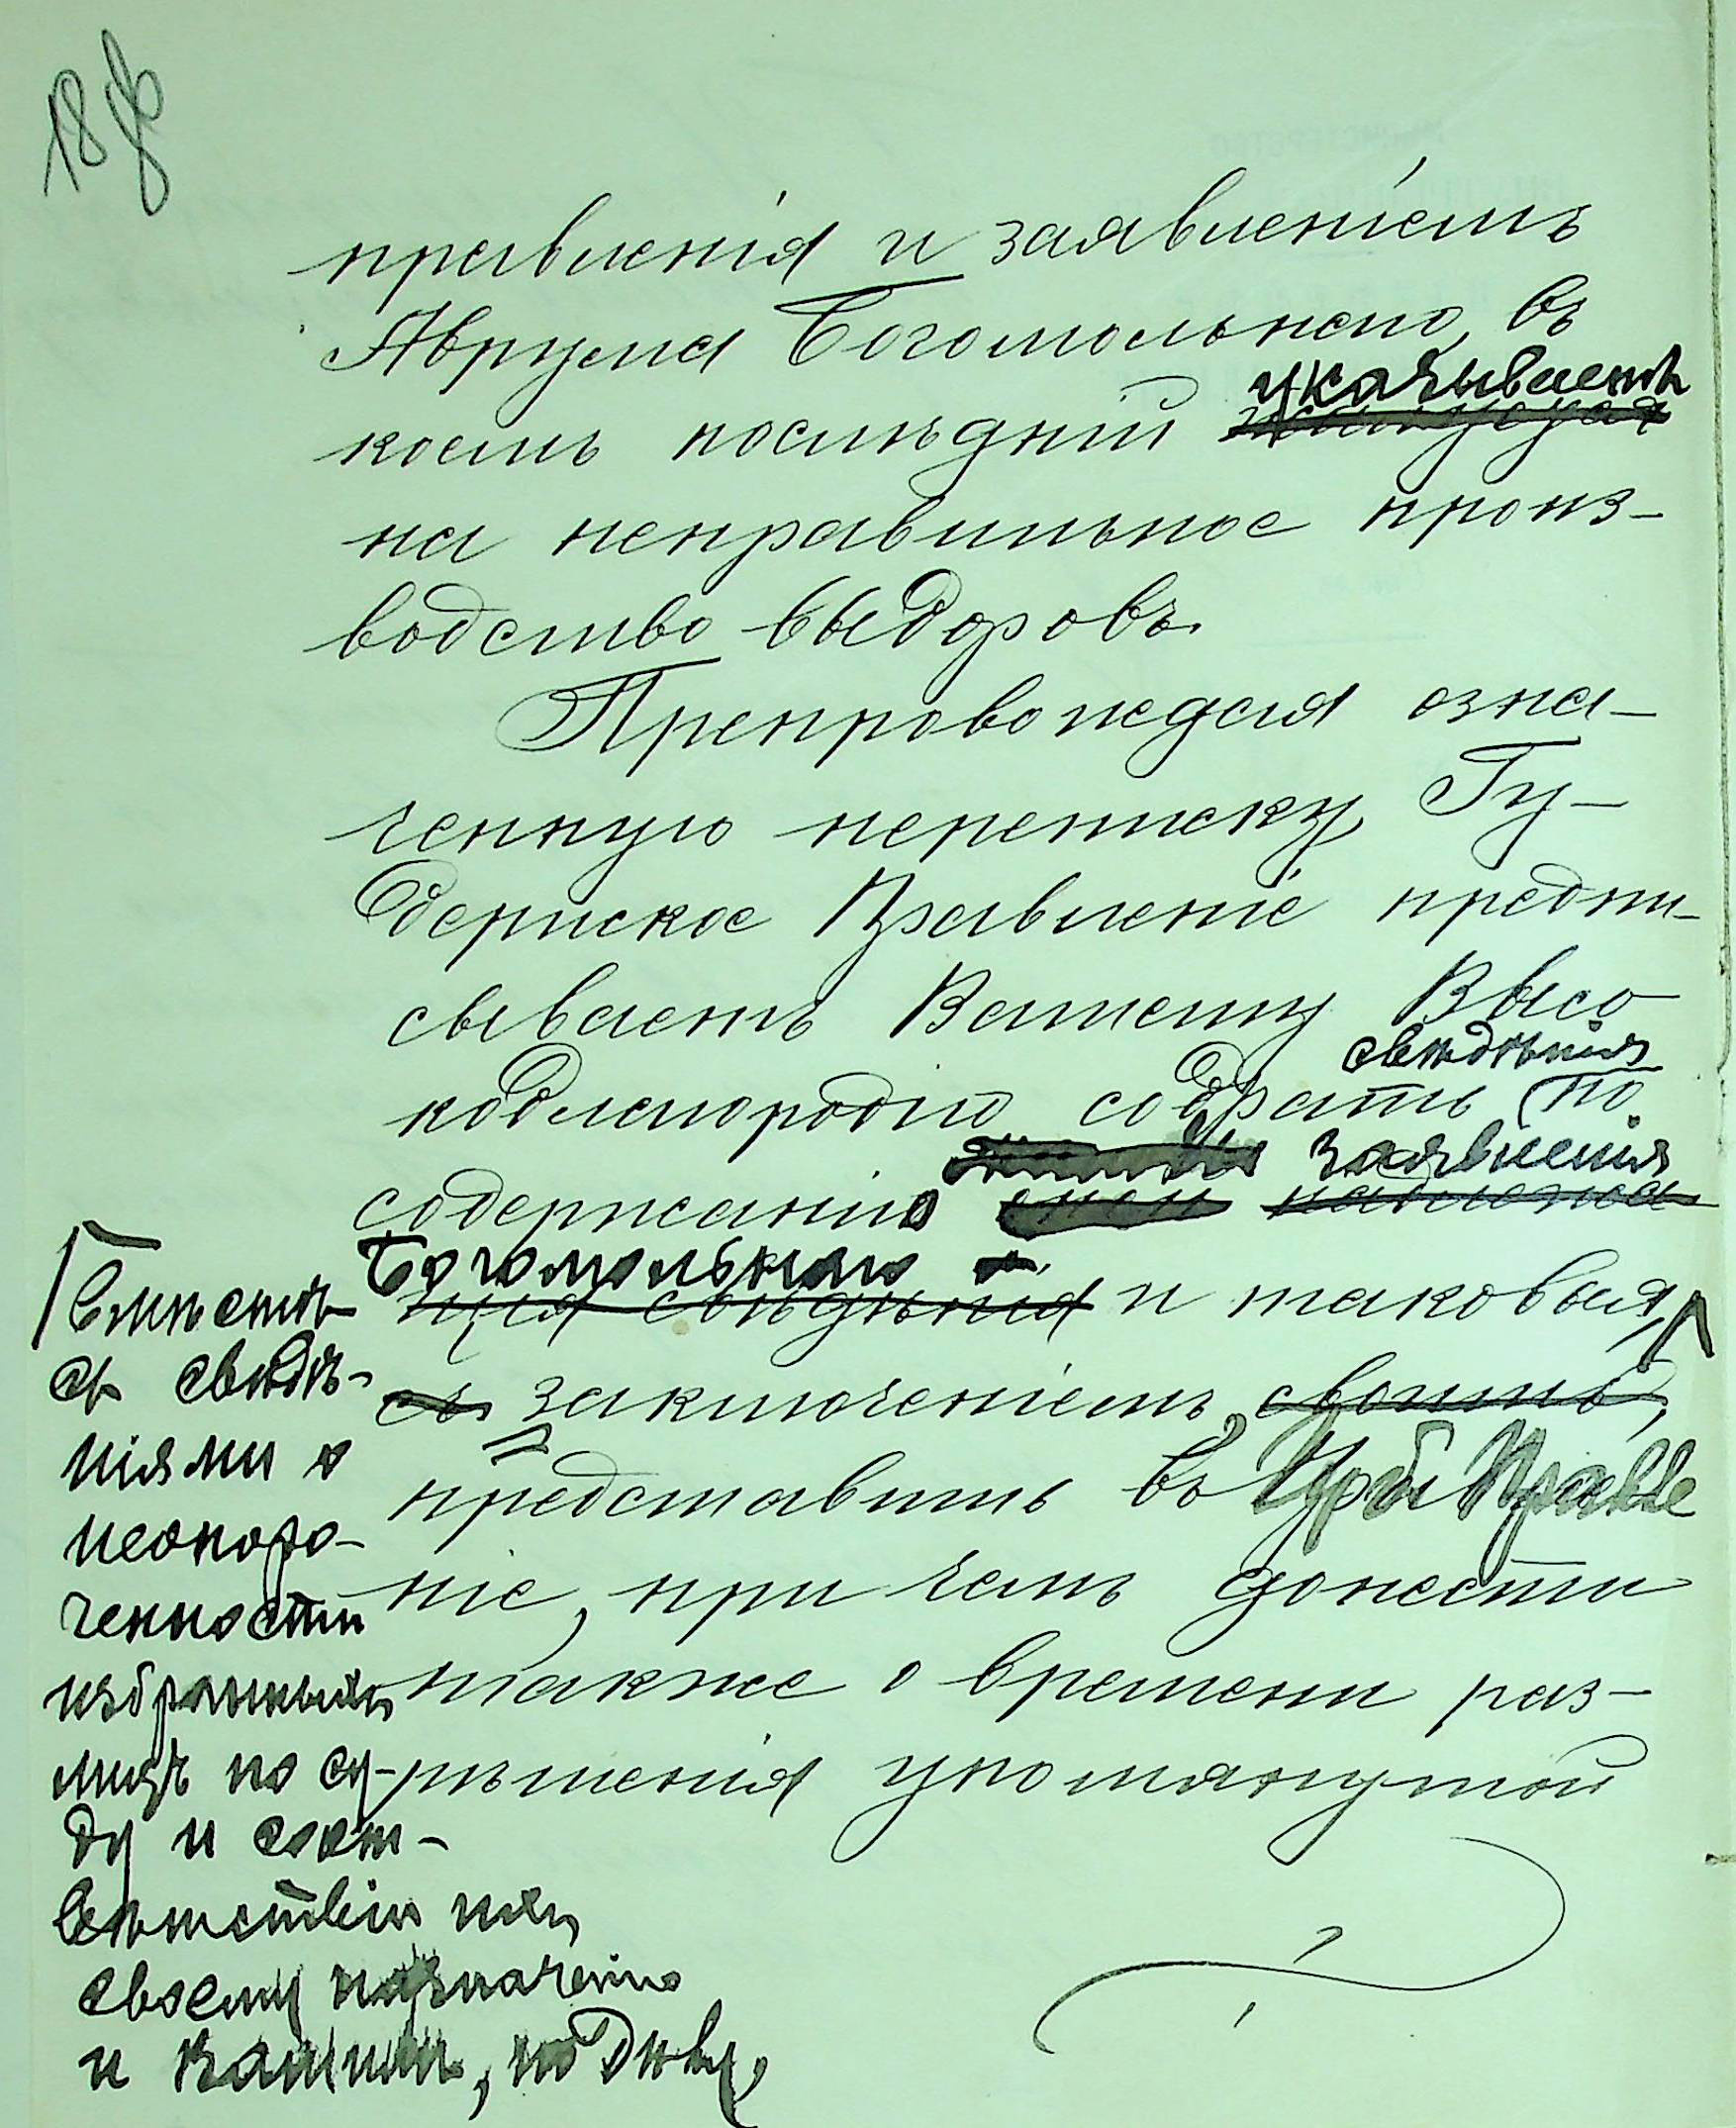 18 об
правленія и заявленіемъ
Аврума Богомольнаго, въ
коемъ послѣдній указываетъ
на неправильное произ-
водство выборовъ.
Препровождая озна-
ченную переписку, Гу-
бернское Правленіе предпи-
сываетъ Вашему Высо
коблагородію собрать свѣдѣнія по
содержанію заявленія
Богомольнаго и таковыя,
съ заключеніемъ своимъ,
представить въ Губ Правле
ніе, при чемъ донести
также о времени раз-
рѣшенія упомянутой
Вмѣстѣ
съ свѣдѣ-
ніями о
неопоро-
ченности
избранныхъ
лицъ по су-
ду и соот-
вѣтствіи ихъ
своему назначенію
и Вашимъ, по дѣлу,